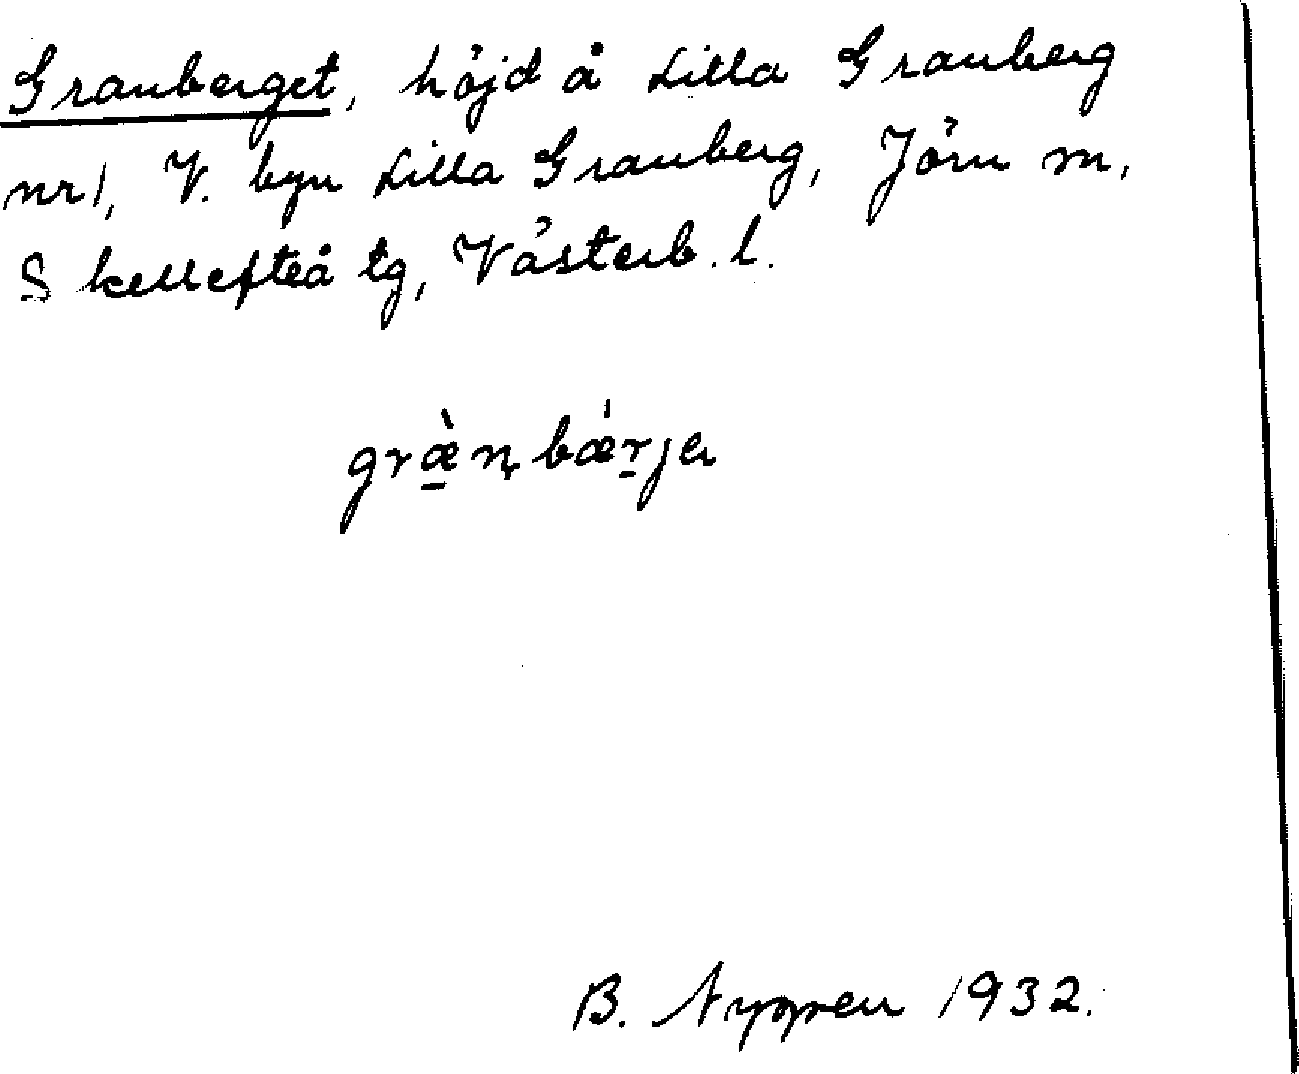 Granberget, höjd å Lilla Granberg
nr 1, V. byn Lilla Granberg, Jörn m,
Skellefteå tg, Västerb. l.
græ̀n bǽrja
B. Nygren 1932.